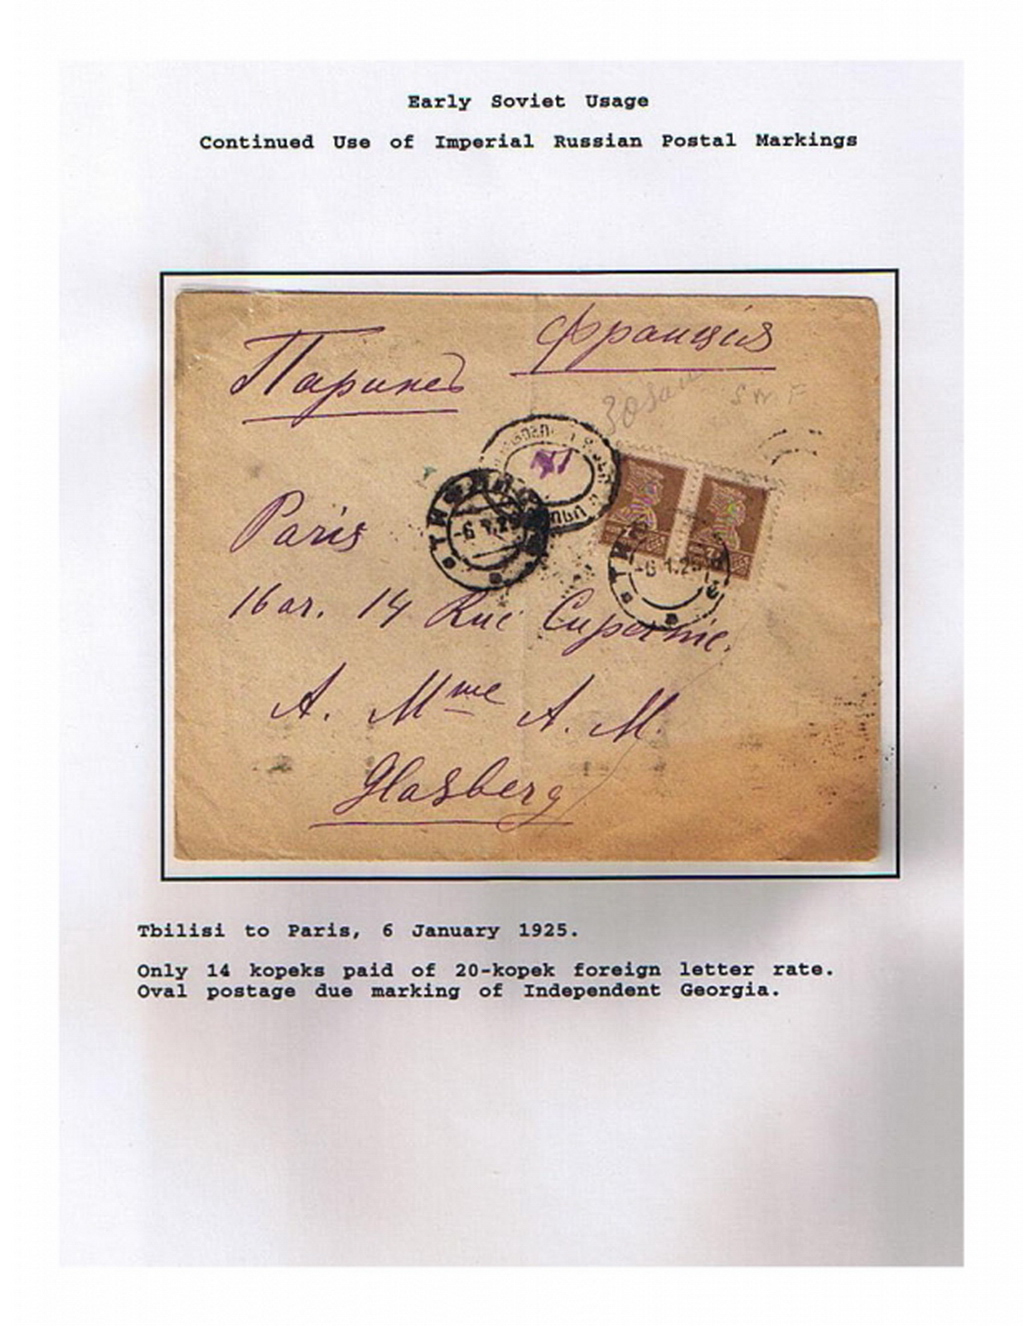 Early Soviet Usage
Continued Use of Imperial Russian Postal Markings
Франція
Парижъ
SWF
Paris
ТИФЛИС
-6 1.25
ТИФ
-6 1.25
16 ar. 14 Rue
A. Mme A. M.
Glasberg
Tbilisi to Paris, 6 January 1925.
Only 14 kopeks paid of 20-kopek foreign letter rate.
Oval postage due marking of Independent Georgia.